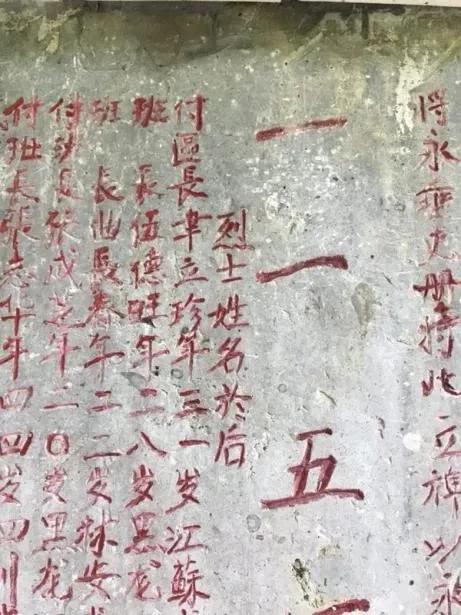 永垂史册特此立碑以永
一一五
烈士姓名於后
付區長韋立珍年三一岁江蘇
班長伍德旺年二八岁黑龙
班長長春年二二岁安
付班長张成芝年二0岁黑龙
付班長張志华年四四岁四川